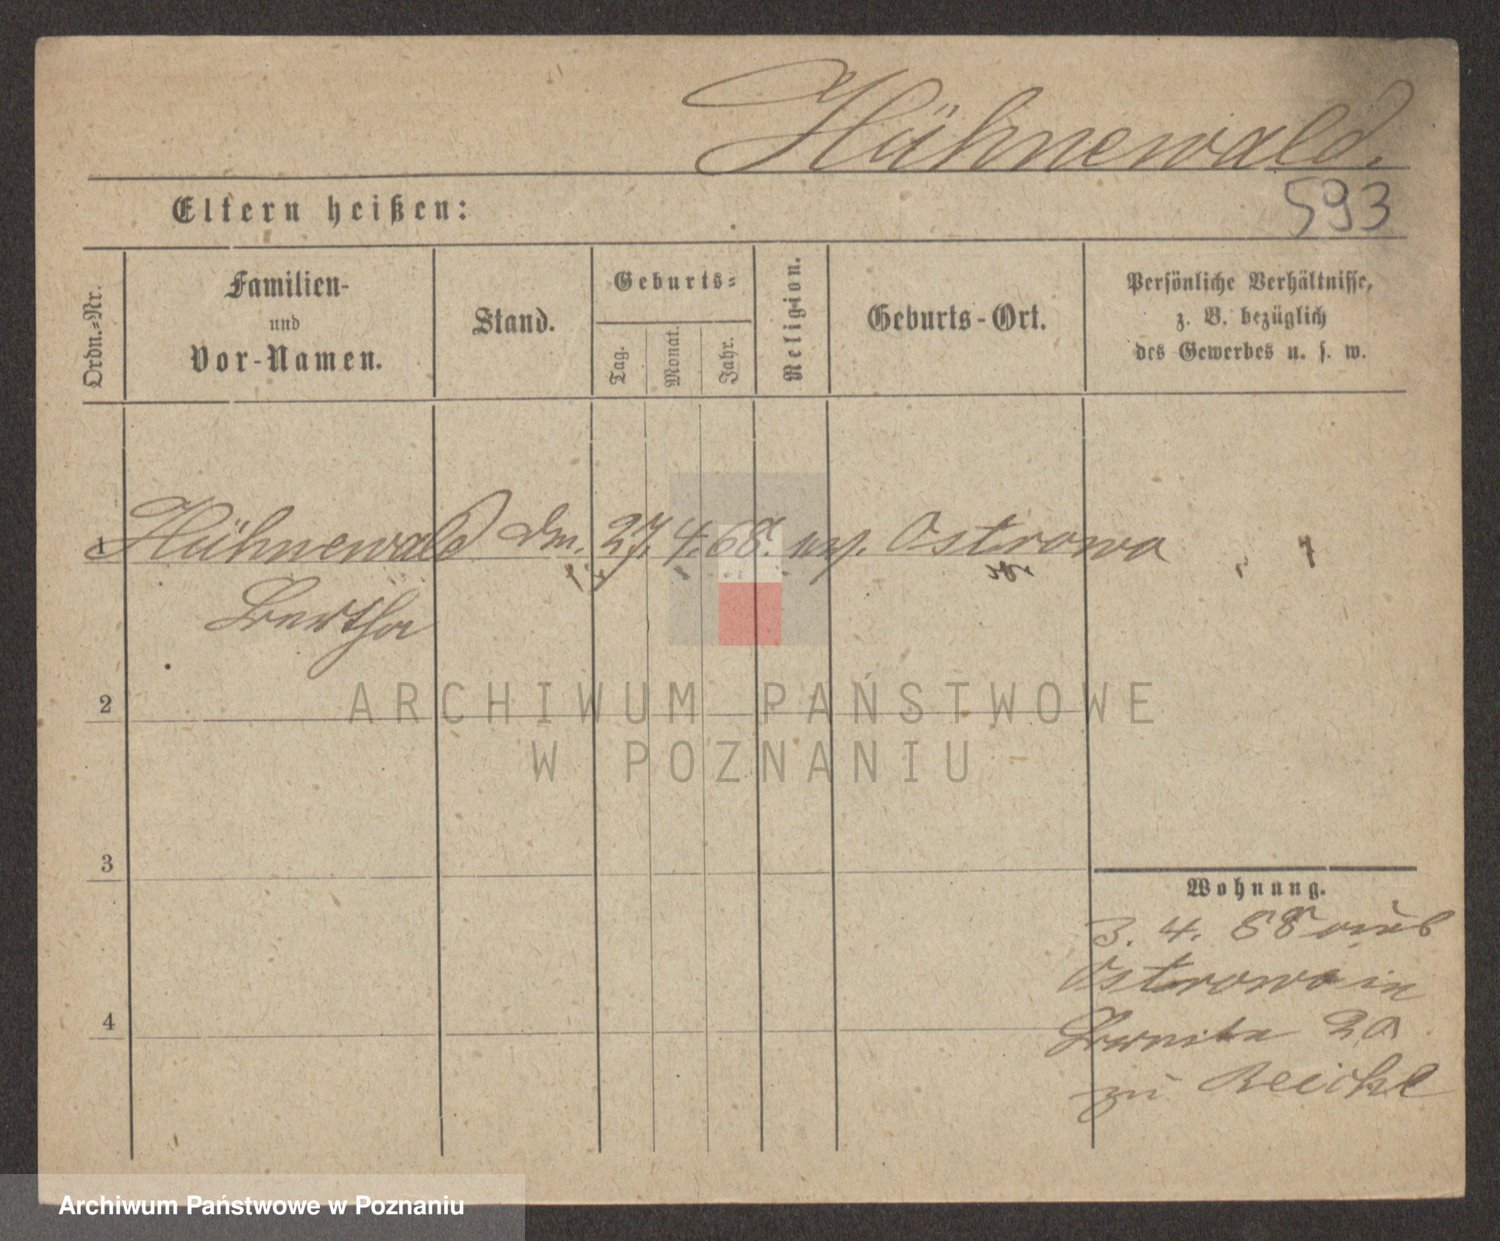 Hühnewald.
593
Eltern heißen:
Ordn.-Nr.
Familien-
und
Vor-Namen.
Stand.
Geburts-
Tag.
Monat.
Jahr.
Religion.
Geburts-Ort.
Persönliche Verhältnisse,
z. B. bezüglich
des Gewerbes u. s. w.
1 Hühnewald 27. 4. 68. Ostrowo
Bertha
ARCHIWUM PAŃSTWOWE
W POZNANIU
2
3
4
Wohnung.
3. 4. 88 aus
Ostrowo in
20
zu
Archiwum Państwowe w Poznaniu